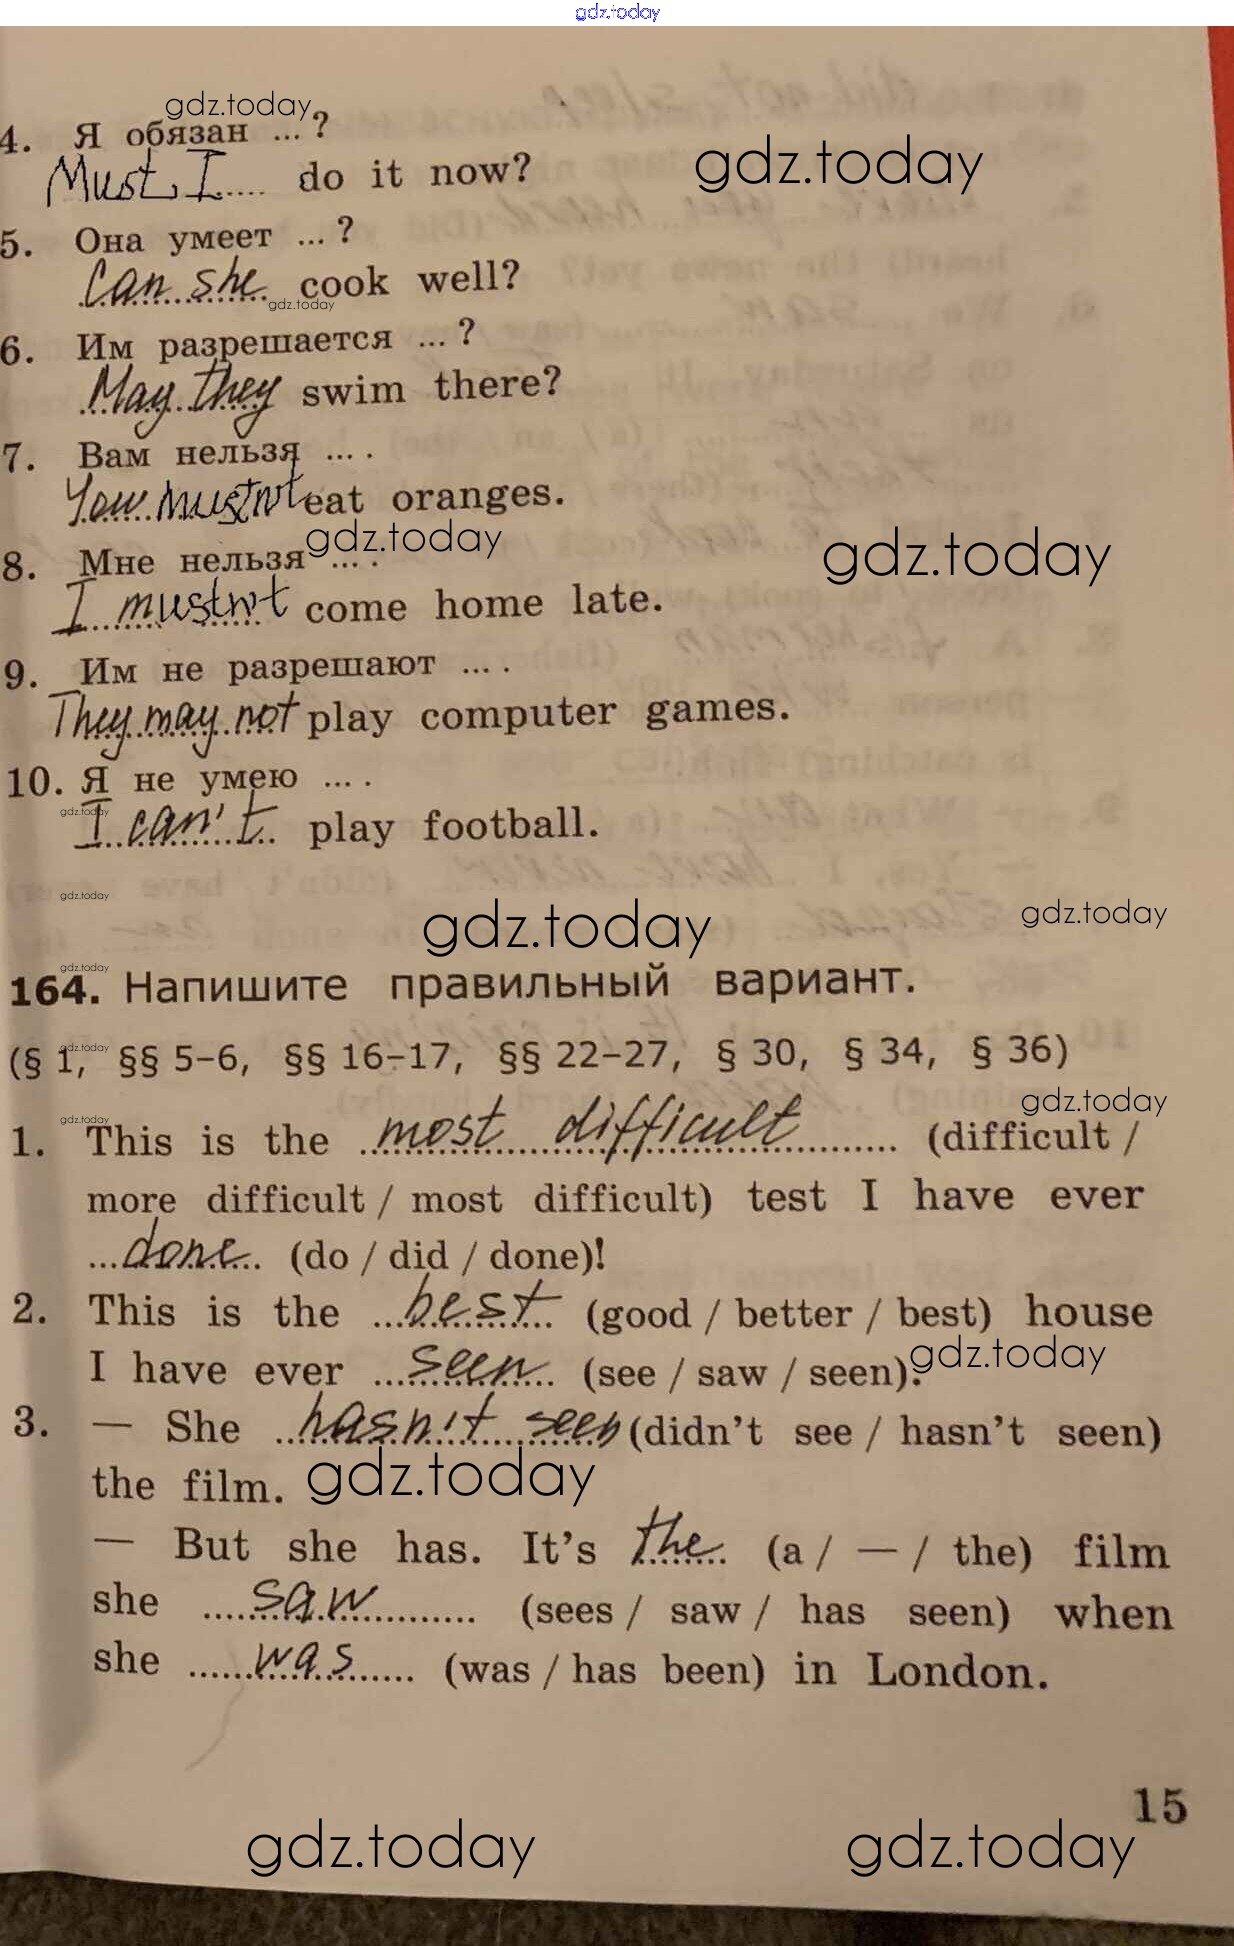 gdz.today
gdz.today
4. Я обязан ... ?
gdz.today
Must I..... do it now?
5. Она умеет ... ?
Can she cook well?
gdz.today
6. Им разрешается ... ?
May they swim there?
7. Вам нельзя ... .
You mustn't eat oranges.
gdz.today
gdz.today
8. Мне нельзя ... .
I mustn't come home late.
9. Им не разрешают ... .
They may not play computer games.
10. Я не умею ... .
gdz.today
I can't play football.
gdz.today
gdz.today
gdz.today
gdz.today
164. Напишите правильный вариант.
gdz.today
(§ 1, §§ 5–6, §§ 16–17, §§ 22–27, § 30, § 34, § 36)
gdz.today
gdz.today
1. This is the most difficult (difficult /
more difficult / most difficult) test I have ever
done (do / did / done)!
2. This is the best (good / better / best) house
I have ever seen (see / saw / seen).
gdz.today
3. — She hasn't seen (didn't see / hasn't seen)
the film.
gdz.today
— But she has. It's the (a / — / the) film
she saw (sees / saw / has seen) when
she was (was / has been) in London.
15
gdz.today
gdz.today